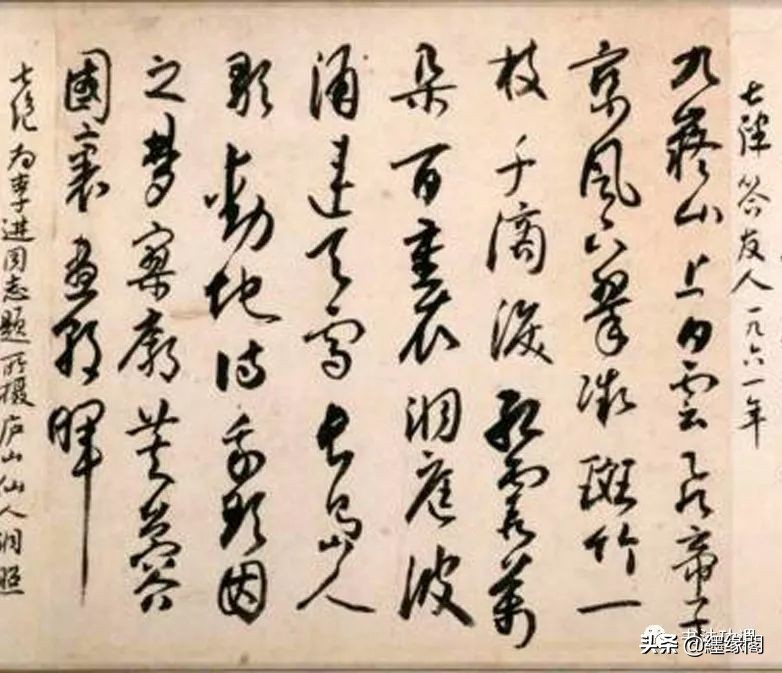 七律 答友人 一九六一年
九嶷山上白雲飞帝子
乘风下翠微斑竹一
枝千滴淚红霞萬
朵百重衣洞庭波
涌连天雪长岛人
歌动地诗我欲因
之梦寥廓芙蓉
國裏盡朝暉
七绝 为李进同志题所摄庐山仙人洞照
头条 @缘阁